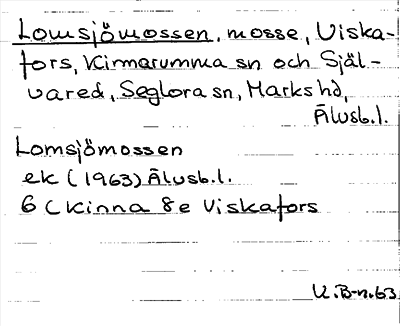 Lomsjömossen, mosse, Viska-
fors, Kinnarumma sn och Själ-
vared, Seglora sn, Marks hd,
Älvsb.l.
Lomsjömossen
ek (1963) Älvsb.l.
6 C Kinna 8e Viskafors
U.B-n.63